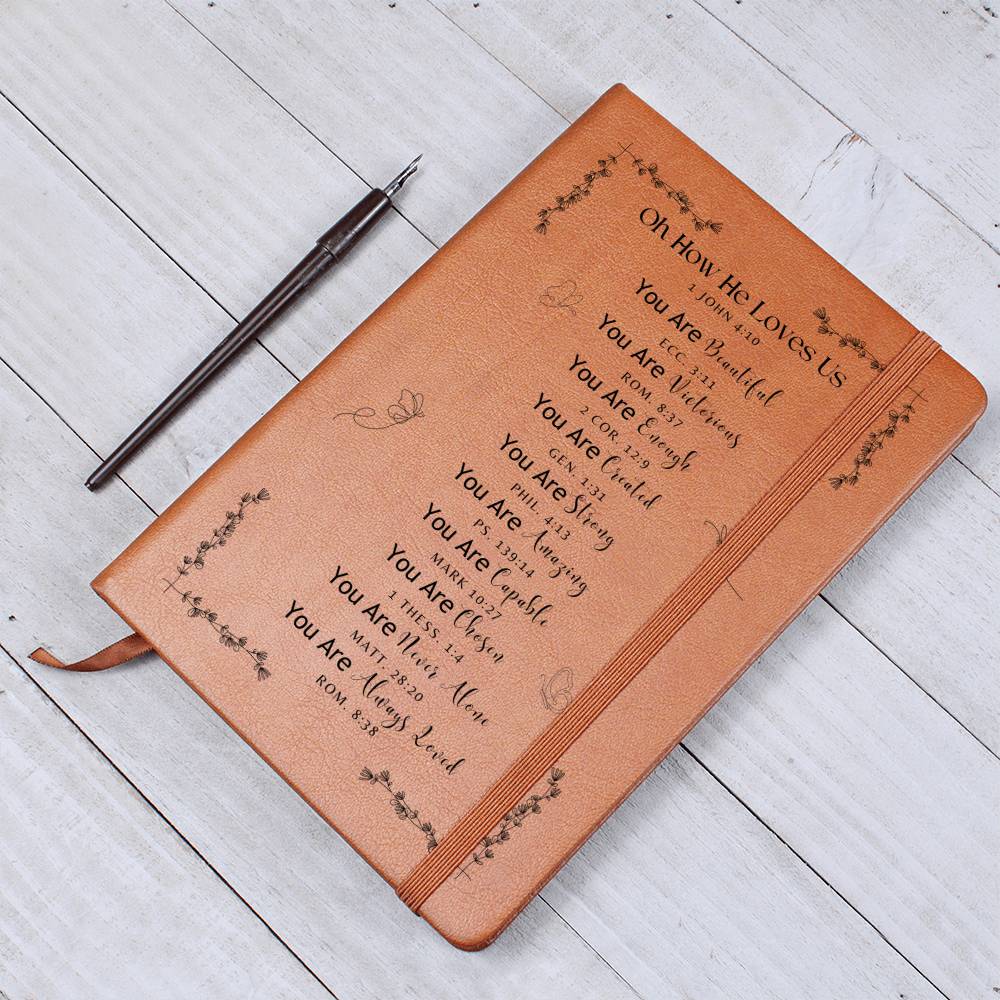 Oh How He Loves Us
1 JOHN 4:10
You Are Beautiful
ECC. 3:11
You Are Victorious
ROM. 8:37
You Are Enough
2 COR. 12:9
You Are Created
GEN. 1:31
You Are Strong
PHIL. 4:13
You Are Amazing
PS. 139:14
You Are Capable
MARK 10:27
You Are Chosen
1 THESS. 1:4
You Are Never Alone
MATT. 28:20
You Are Always Loved
ROM. 8:38